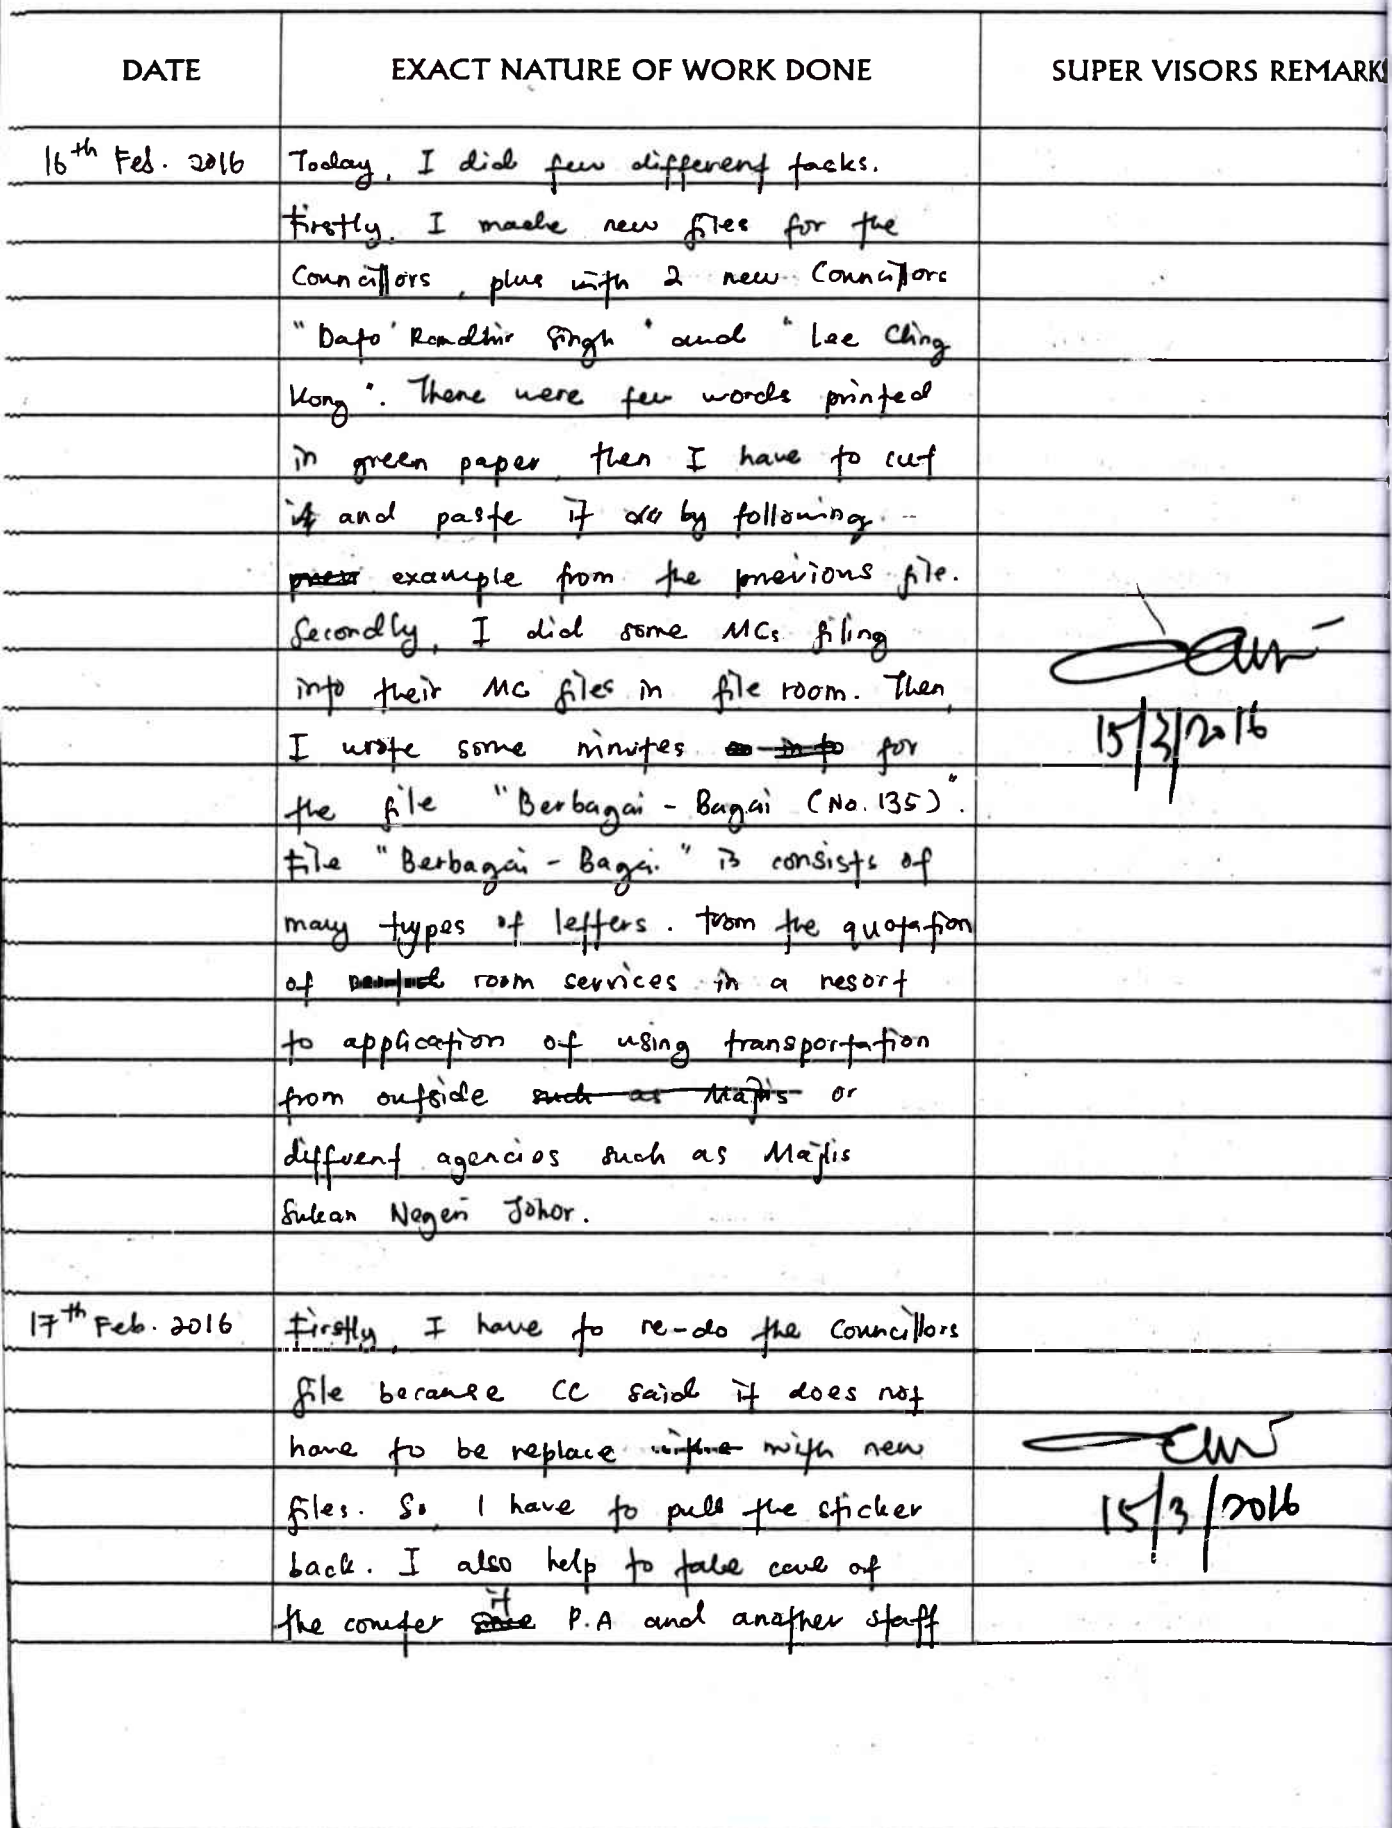 DATE EXACT NATURE OF WORK DONE SUPER VISORS REMARKS
16th Feb. 2016 Today, I did few different tasks.
Firstly, I made new files for the
Councillors, plus with 2 new Councillors
"Dato' Randhir Singh" and "Lee Ching
Kong". There were few words printed
in green paper, then I have to cut
it and paste it by following
example from the previous file.
Secondly, I did some MCs filing
into their MC files in file room. Then,
I wrote some minutes for
15/3/2016
the file "Berbagai - Bagai (No. 135)".
File "Berbagai - Bagai" is consists of
many types of letters. From the quotation
of room services in a resort
to application of using transportation
from outside such as Majlis or
diffrent agencies such as Majlis
Sukan Negeri Johor.
17th Feb. 2016 Firstly, I have to re-do the Councillors
file because CC said it does not
have to be replace with new
files. So, I have to pull the sticker
15/3/2016
back. I also help to take care of
the counter if P.A and another staff